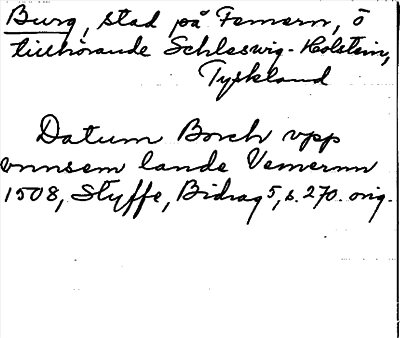 Burg, stad på Femern, ö
tillhörande Schleswig-Holstein,
Tyskland
Datum Borch vpp
vnnsem lande Vemernn
1508, Styffe, Bidrag 5, s. 270. orig.